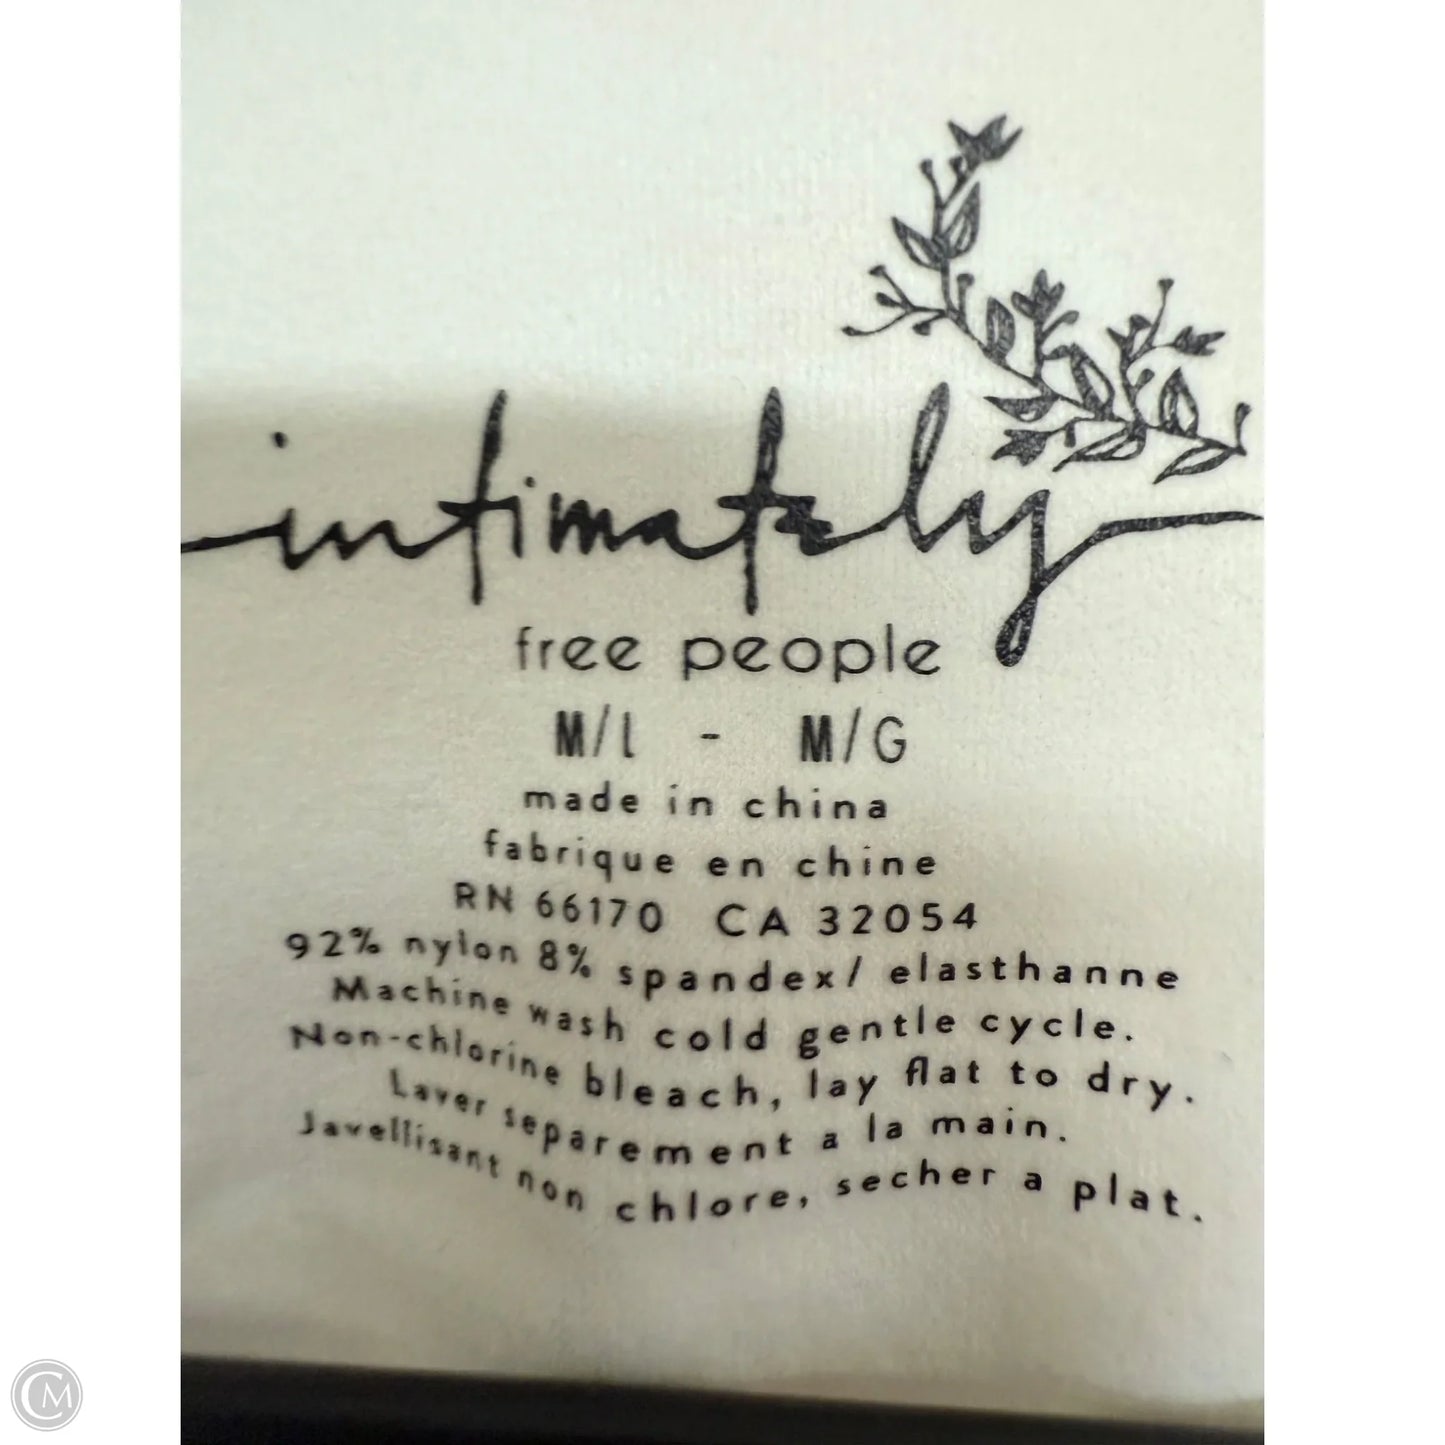 intimately
free people
M/L - M/G
made in china
fabrique en chine
RN 66170 CA 32054
92% nylon 8% spandex/ elasthanne
Machine wash cold gentle cycle.
Non-chlorine bleach, lay flat to dry.
Laver separement a la main.
Javellisant non chlore, secher a plat.
CM